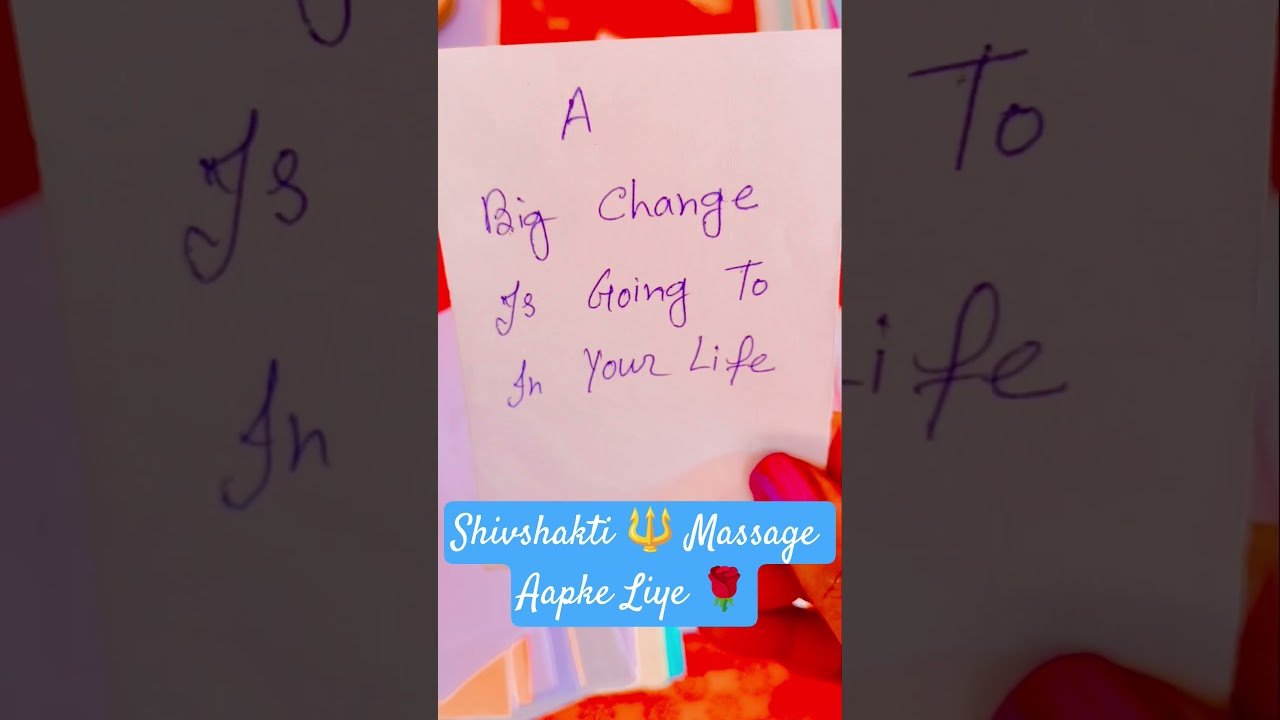 A
Big Change
Is Going To
In Your Life
Shivshakti 🔱 Massage
Aapke Liye 🌹